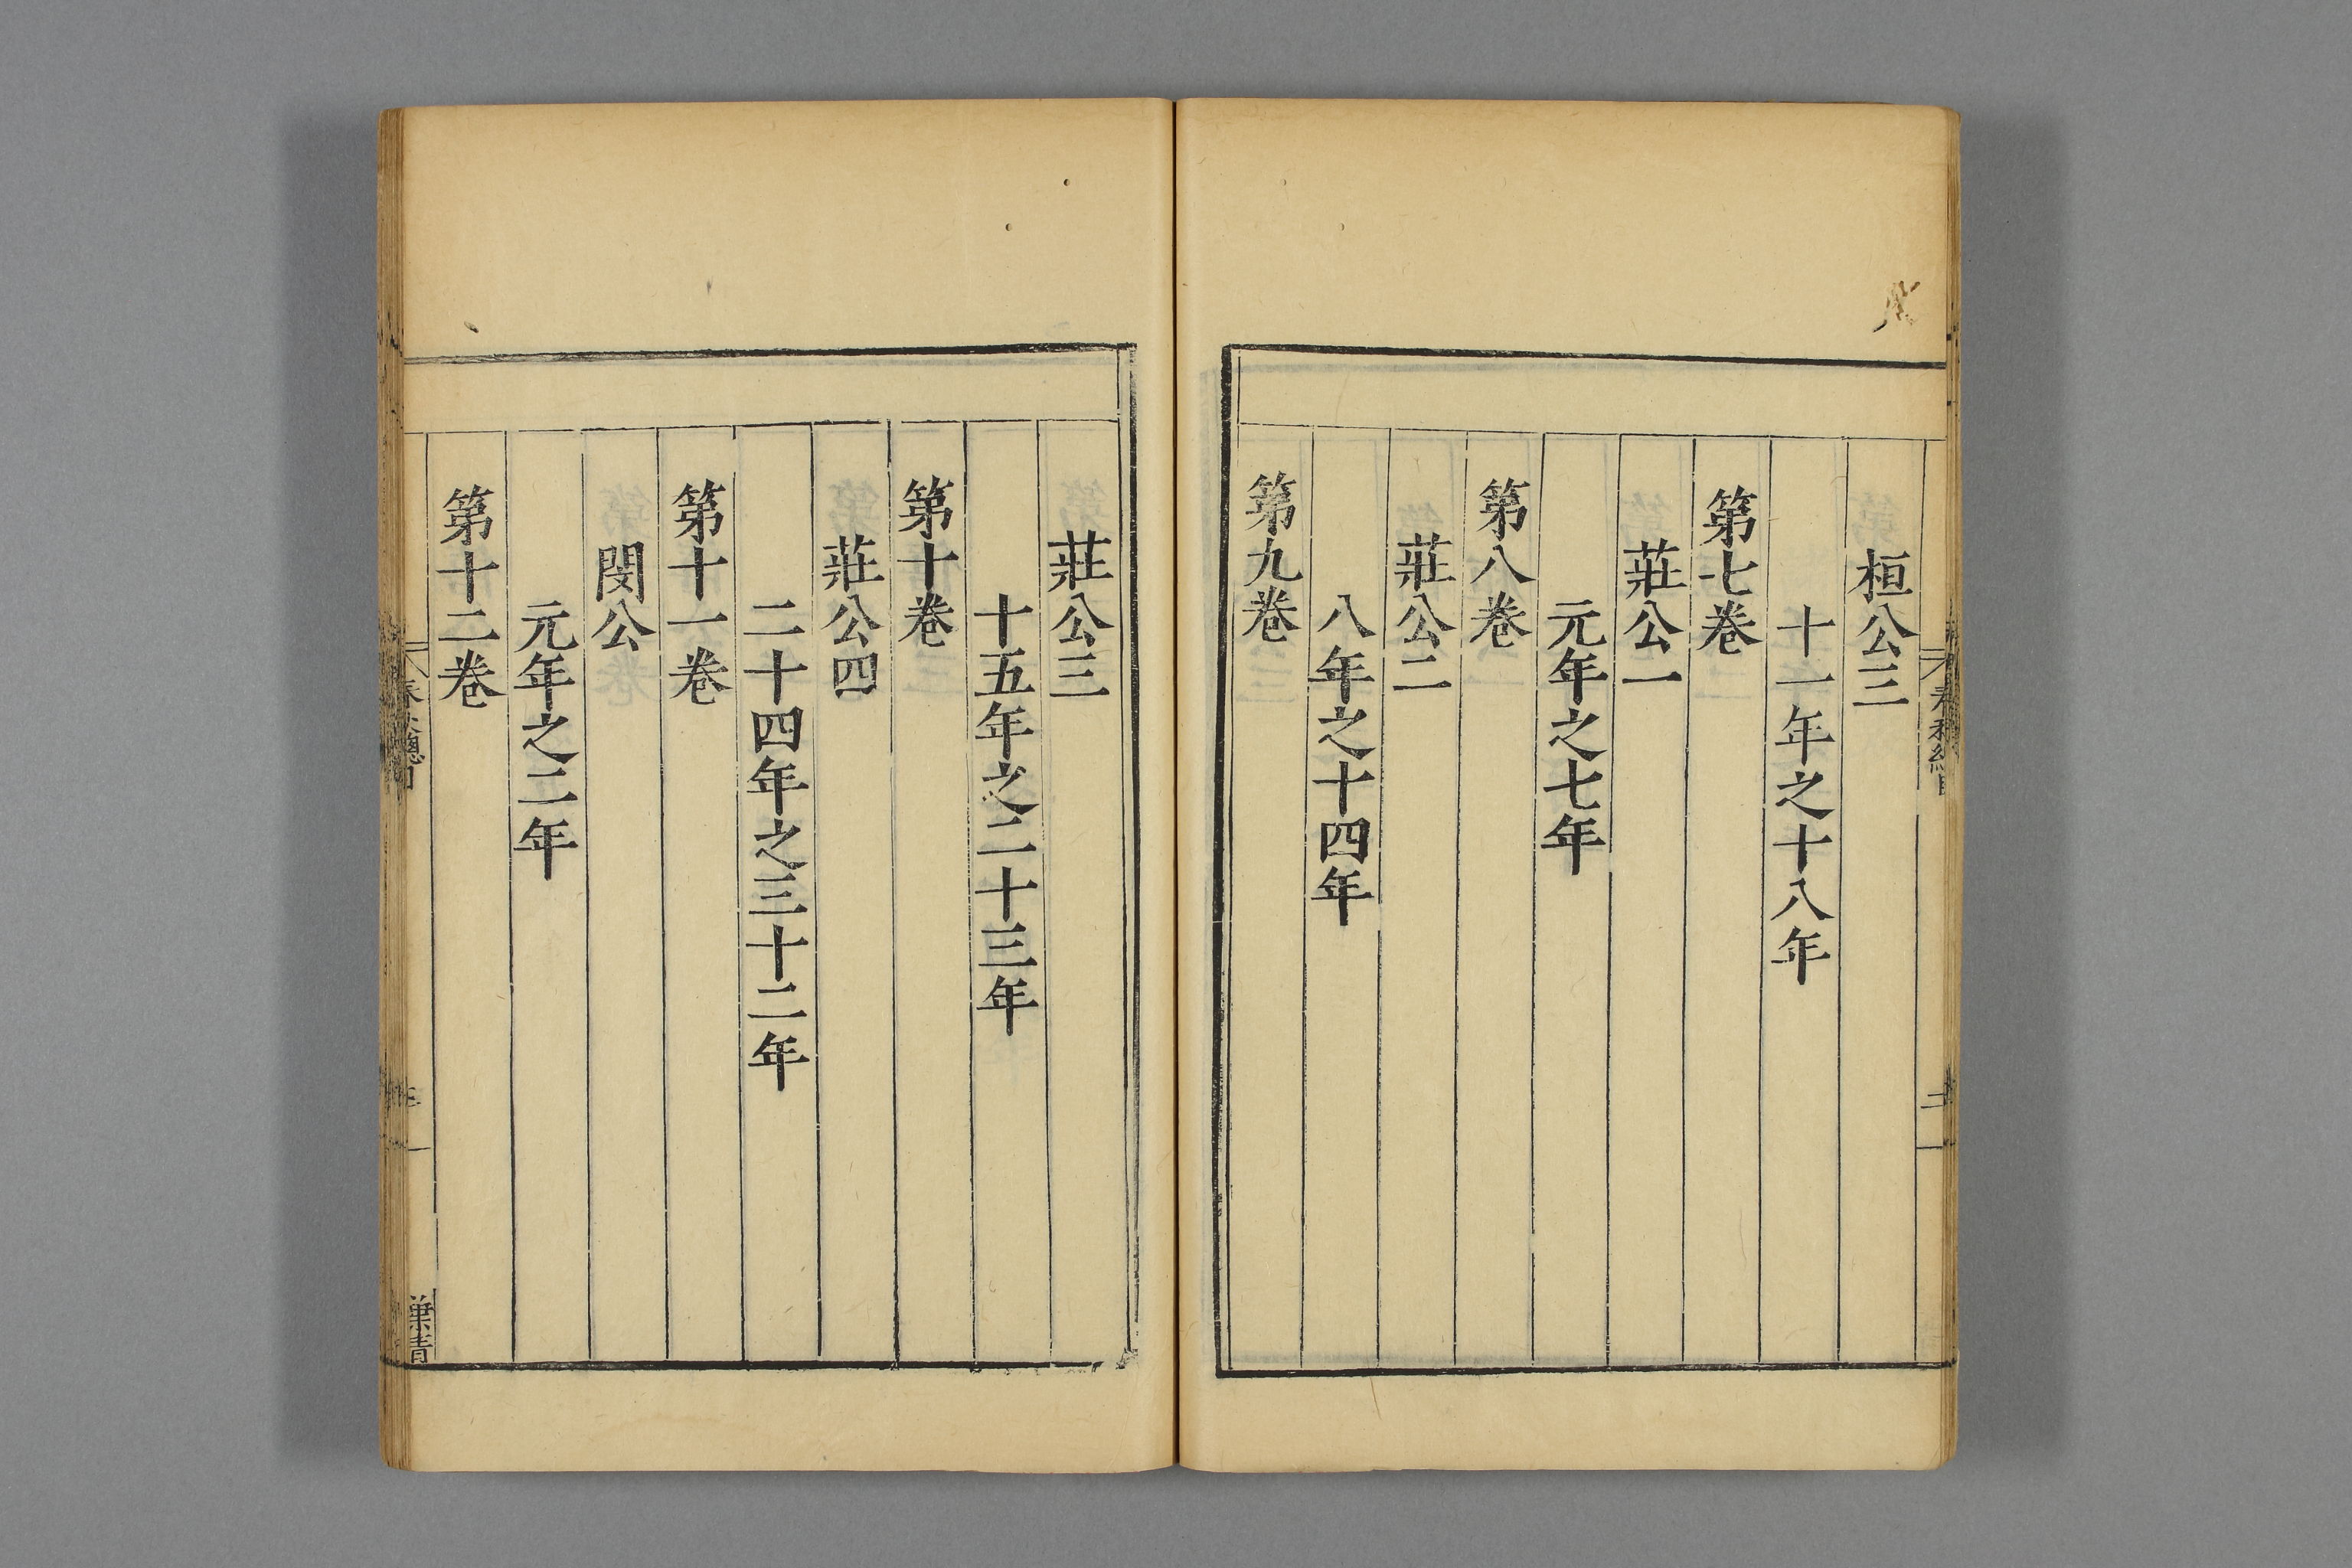 桓公三
十一年之十八年
第七卷
莊公一
元年之七年
第八卷
莊公二
八年之十四年
第九卷
莊公三
十五年之二十三年
第十卷
莊公四
二十四年之三十二年
第十一卷
閔公
元年之二年
第十二卷
葉青